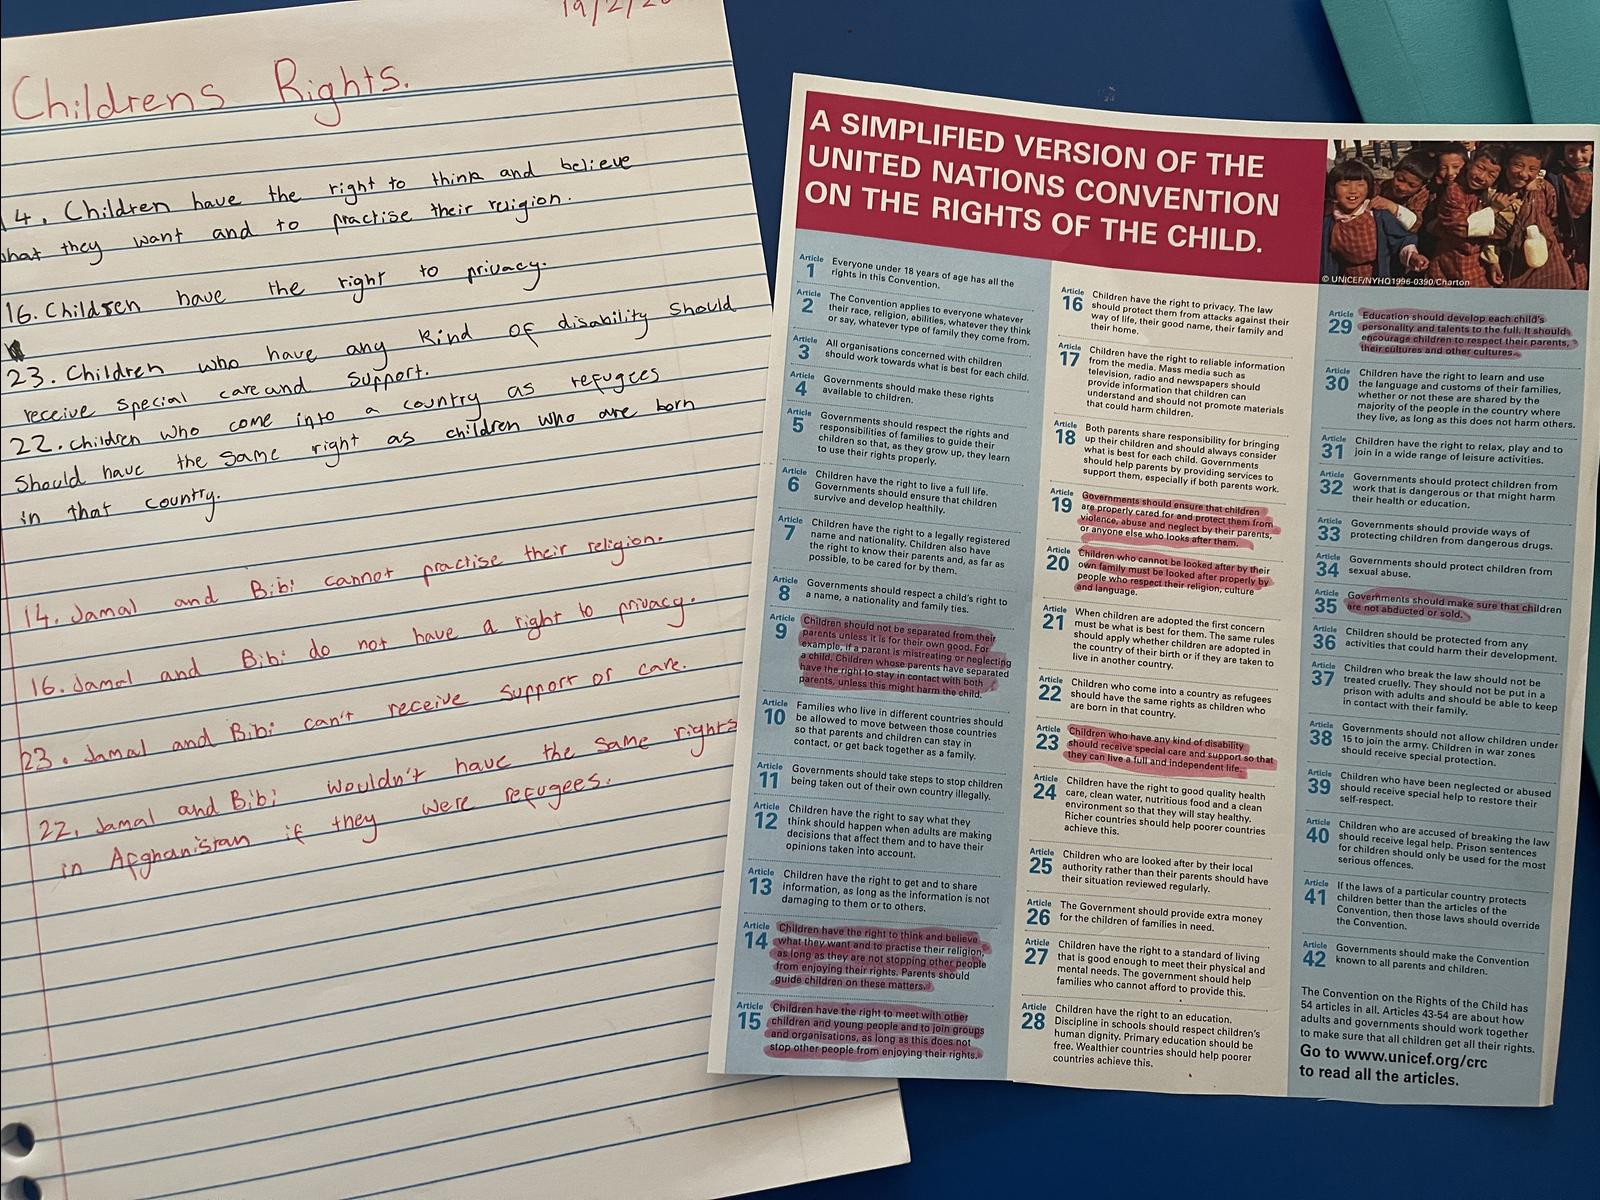 19/2/20
Childrens Rights.
14. Children have the right to think and believe
what they want and to practise their religion.
16. Children have the right to privacy.
23. Children who have any kind of disability should
receive special care and support.
22. Children who come into a country as refugees
should have the same right as children who are born
in that country.
14. Jamal and Bibi cannot practise their religion.
16. Jamal and Bibi do not have a right to privacy.
23. Jamal and Bibi can't receive support or care.
22. Jamal and Bibi wouldn't have the same rights
in Afghanistan if they were refugees.
A SIMPLIFIED VERSION OF THE
UNITED NATIONS CONVENTION
ON THE RIGHTS OF THE CHILD.
© UNICEF/NYHQ1996-0390/Charton
Article 1
Everyone under 18 years of age has all the
rights in this Convention.
Article 2
The Convention applies to everyone whatever
their race, religion, abilities, whatever they think
or say, whatever type of family they come from.
Article 3
All organisations concerned with children
should work towards what is best for each child.
Article 4
Governments should make these rights
available to children.
Article 5
Governments should respect the rights and
responsibilities of families to guide their
children so that, as they grow up, they learn
to use their rights properly.
Article 6
Children have the right to live a full life.
Governments should ensure that children
survive and develop healthily.
Article 7
Children have the right to a legally registered
name and nationality. Children also have
the right to know their parents and, as far as
possible, to be cared for by them.
Article 8
Governments should respect a child's right to
a name, a nationality and family ties.
Article 9
Children should not be separated from their
parents unless it is for their own good. For
example, if a parent is mistreating or neglecting
a child. Children whose parents have separated
have the right to stay in contact with both
parents, unless this might harm the child.
Article 10
Families who live in different countries should
be allowed to move between those countries
so that parents and children can stay in
contact, or get back together as a family.
Article 11
Governments should take steps to stop children
being taken out of their own country illegally.
Article 12
Children have the right to say what they
think should happen when adults are making
decisions that affect them and to have their
opinions taken into account.
Article 13
Children have the right to get and to share
information, as long as the information is not
damaging to them or to others.
Article 14
Children have the right to think and believe
what they want and to practise their religion,
as long as they are not stopping other people
from enjoying their rights. Parents should
guide children on these matters.
Article 15
Children have the right to meet with other
children and young people and to join groups
and organisations, as long as this does not
stop other people from enjoying their rights.
Article 16
Children have the right to privacy. The law
should protect them from attacks against their
way of life, their good name, their family and
their home.
Article 17
Children have the right to reliable information
from the media. Mass media such as
television, radio and newspapers should
provide information that children can
understand and should not promote materials
that could harm children.
Article 18
Both parents share responsibility for bringing
up their children and should always consider
what is best for each child. Governments
should help parents by providing services to
support them, especially if both parents work.
Article 19
Governments should ensure that children
are properly cared for and protect them from
violence, abuse and neglect by their parents,
or anyone else who looks after them.
Article 20
Children who cannot be looked after by their
own family must be looked after properly by
people who respect their religion, culture
and language.
Article 21
When children are adopted the first concern
must be what is best for them. The same rules
should apply whether children are adopted in
the country of their birth or if they are taken to
live in another country.
Article 22
Children who come into a country as refugees
should have the same rights as children who
are born in that country.
Article 23
Children who have any kind of disability
should receive special care and support so that
they can live a full and independent life.
Article 24
Children have the right to good quality health
care, clean water, nutritious food and a clean
environment so that they will stay healthy.
Richer countries should help poorer countries
achieve this.
Article 25
Children who are looked after by their local
authority rather than their parents should have
their situation reviewed regularly.
Article 26
The Government should provide extra money
for the children of families in need.
Article 27
Children have the right to a standard of living
that is good enough to meet their physical and
mental needs. The government should help
families who cannot afford to provide this.
Article 28
Children have the right to an education.
Discipline in schools should respect children's
human dignity. Primary education should be
free. Wealthier countries should help poorer
countries achieve this.
Article 29
Education should develop each child's
personality and talents to the full. It should
encourage children to respect their parents,
their cultures and other cultures.
Article 30
Children have the right to learn and use
the language and customs of their families,
whether or not these are shared by the
majority of the people in the country where
they live, as long as this does not harm others.
Article 31
Children have the right to relax, play and to
join in a wide range of leisure activities.
Article 32
Governments should protect children from
work that is dangerous or that might harm
their health or education.
Article 33
Governments should provide ways of
protecting children from dangerous drugs.
Article 34
Governments should protect children from
sexual abuse.
Article 35
Governments should make sure that children
are not abducted or sold.
Article 36
Children should be protected from any
activities that could harm their development.
Article 37
Children who break the law should not be
treated cruelly. They should not be put in a
prison with adults and should be able to keep
in contact with their family.
Article 38
Governments should not allow children under
15 to join the army. Children in war zones
should receive special protection.
Article 39
Children who have been neglected or abused
should receive special help to restore their
self-respect.
Article 40
Children who are accused of breaking the law
should receive legal help. Prison sentences
for children should only be used for the most
serious offences.
Article 41
If the laws of a particular country protects
children better than the articles of the
Convention, then those laws should override
the Convention.
Article 42
Governments should make the Convention
known to all parents and children.
The Convention on the Rights of the Child has
54 articles in all. Articles 43-54 are about how
adults and governments should work together
to make sure that all children get all their rights.
Go to www.unicef.org/crc
to read all the articles.